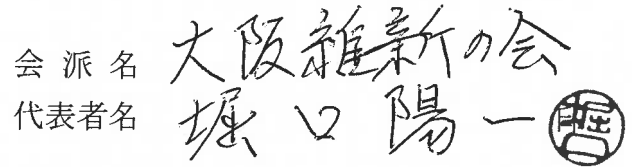 会派名 大阪維新の会
代表者名 堀口陽一 堀口